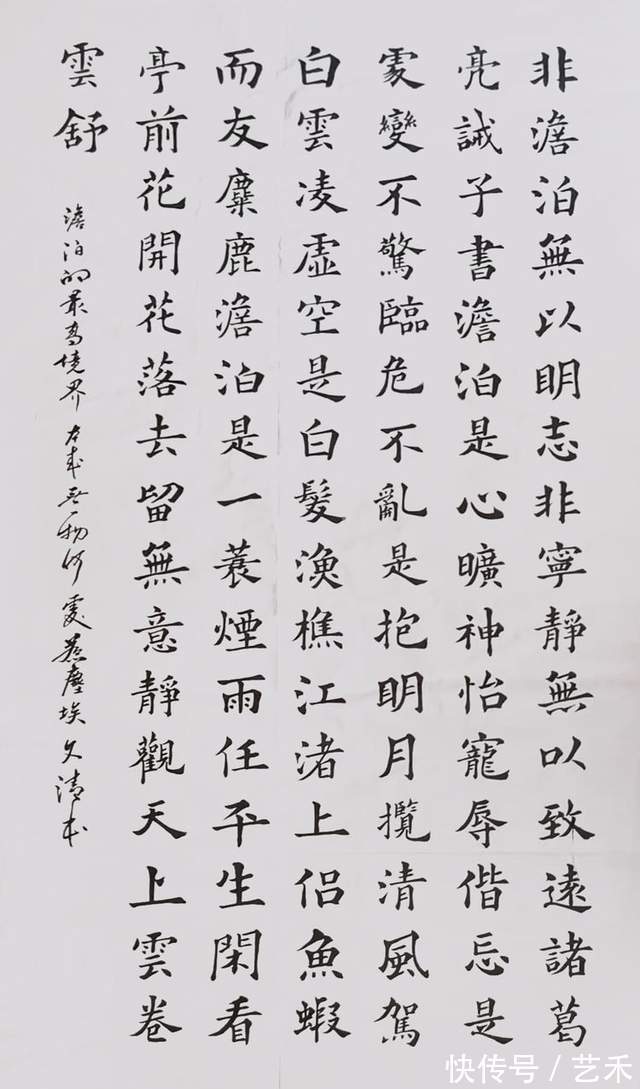 非澹泊無以明志非寧靜無以致遠諸葛
亮誡子書澹泊是心曠神怡寵辱偕忘是
處變不驚臨危不亂是抱明月攬清風駕
白雲凌虛空是白髮漁樵江渚上侶魚蝦
而友麋鹿澹泊是一蓑煙雨任平生閑看
亭前花開花落去留無意靜觀天上雲卷
雲舒
澹泊的最高境界 本來無一物何處惹塵埃
快传号/艺禾